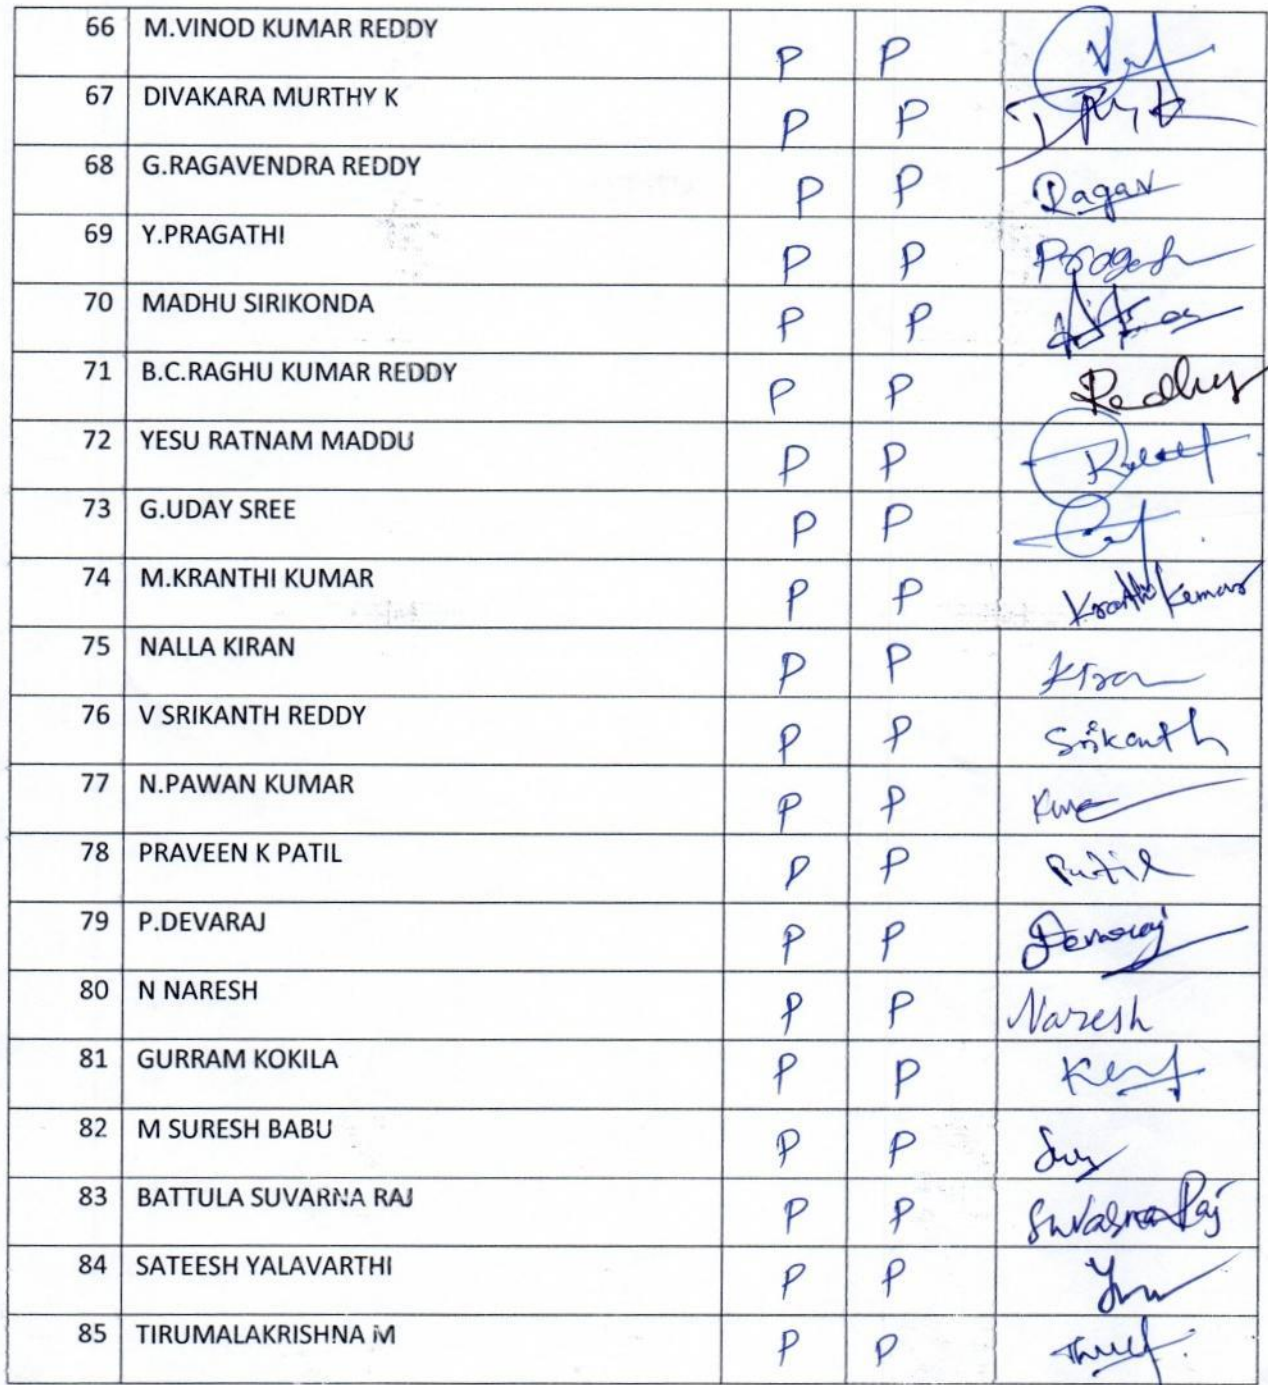 66 M.VINOD KUMAR REDDY P P
67 DIVAKARA MURTHY K P P
68 G.RAGAVENDRA REDDY P P Ragav
69 Y.PRAGATHI P P
70 MADHU SIRIKONDA P P
71 B.C.RAGHU KUMAR REDDY P P
72 YESU RATNAM MADDU P P
73 G.UDAY SREE P P
74 M.KRANTHI KUMAR P P Kranthi Kumar
75 NALLA KIRAN P P Kiran
76 V SRIKANTH REDDY P P Srikanth
77 N.PAWAN KUMAR P P
78 PRAVEEN K PATIL P P Patil
79 P.DEVARAJ P P Devaraj
80 N NARESH P P Naresh
81 GURRAM KOKILA P P
82 M SURESH BABU P P
83 BATTULA SUVARNA RAJ P P Suvarna Raj
84 SATEESH YALAVARTHI P P
85 TIRUMALAKRISHNA M P P